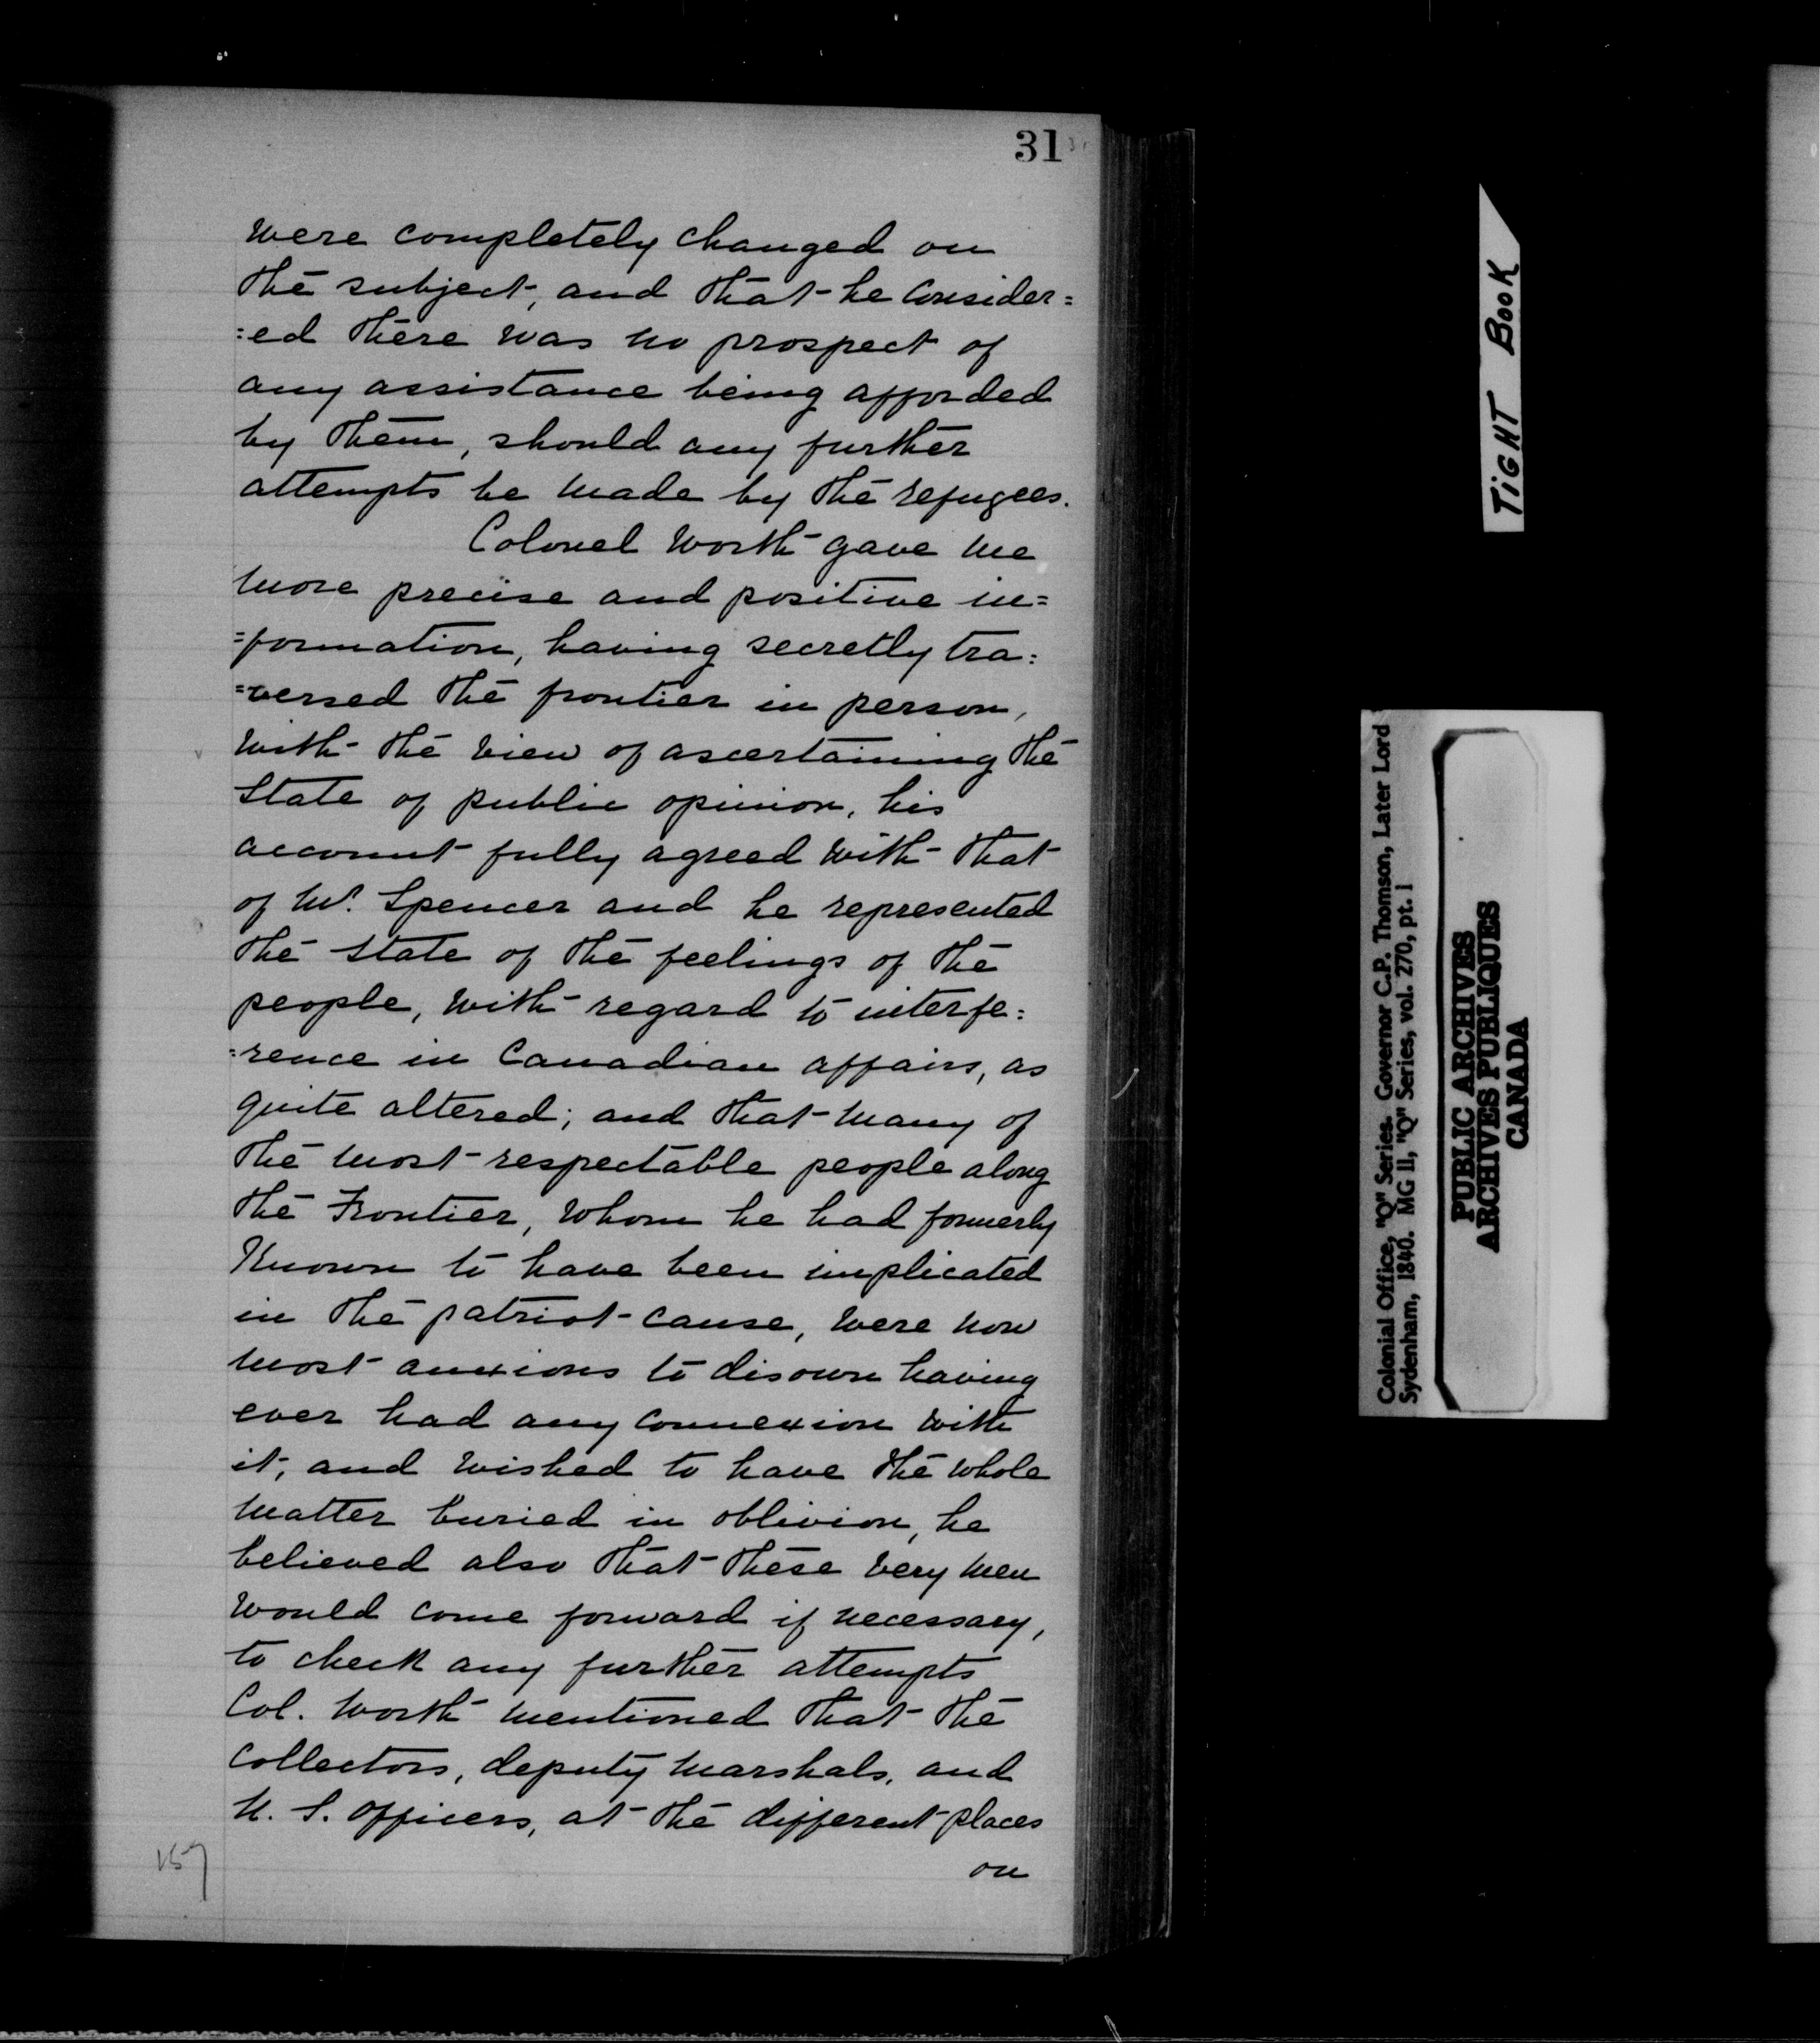 31
were completely changed on
the subject, and that he consider=
:ed there was no prospect of
any assistance being afforded
by them, should any further
attempts be made by the refugees.
Colonel Worth gave me
more precise and positive in=
=formation, having secretly tra:
=versed the frontier in person,
with the view of ascertaining the
State of public opinion, his
account fully agreed with that
of Mr. Spencer and he represented
the State of the feelings of the
people, with regard to interfe:
:rence in Canadian affairs, as
quite altered; and that many of
the most respectable people along
the Frontier, whom he had formerly
Known to have been implicated
in the patriot cause, were now
most anxious to disown having
ever had any connexion with
it, and wished to have the whole
matter buried in oblivion, he
believed also that these very men
would come forward if necessary,
to check any further attempts
Col. Worth mentioned that the
Collectors, deputy Marshals, and
U. S. Officers, at the different places
on
157
TIGHT BOOK
Colonial Office, "Q" Series. Governor C.P. Thomson, Later Lord
Sydenham, 1840. MG 11, "Q" Series, vol. 270, pt. 1
PUBLIC ARCHIVES
ARCHIVES PUBLIQUES
CANADA